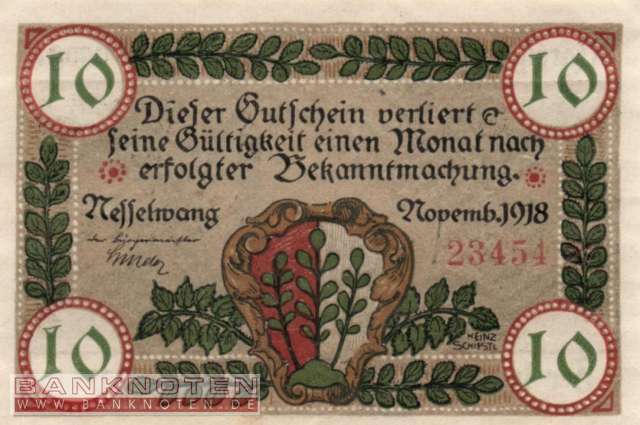 10 10
Dieser Gutschein verliert
seine Gültigkeit einen Monat nach
erfolgter Bekanntmachung.
Nesselwang Novemb. 1918
der Bürgermeister
23454
HEINZ
SCHIESTL
10 10
BANKNOTEN
WWW.BANKNOTEN.DE